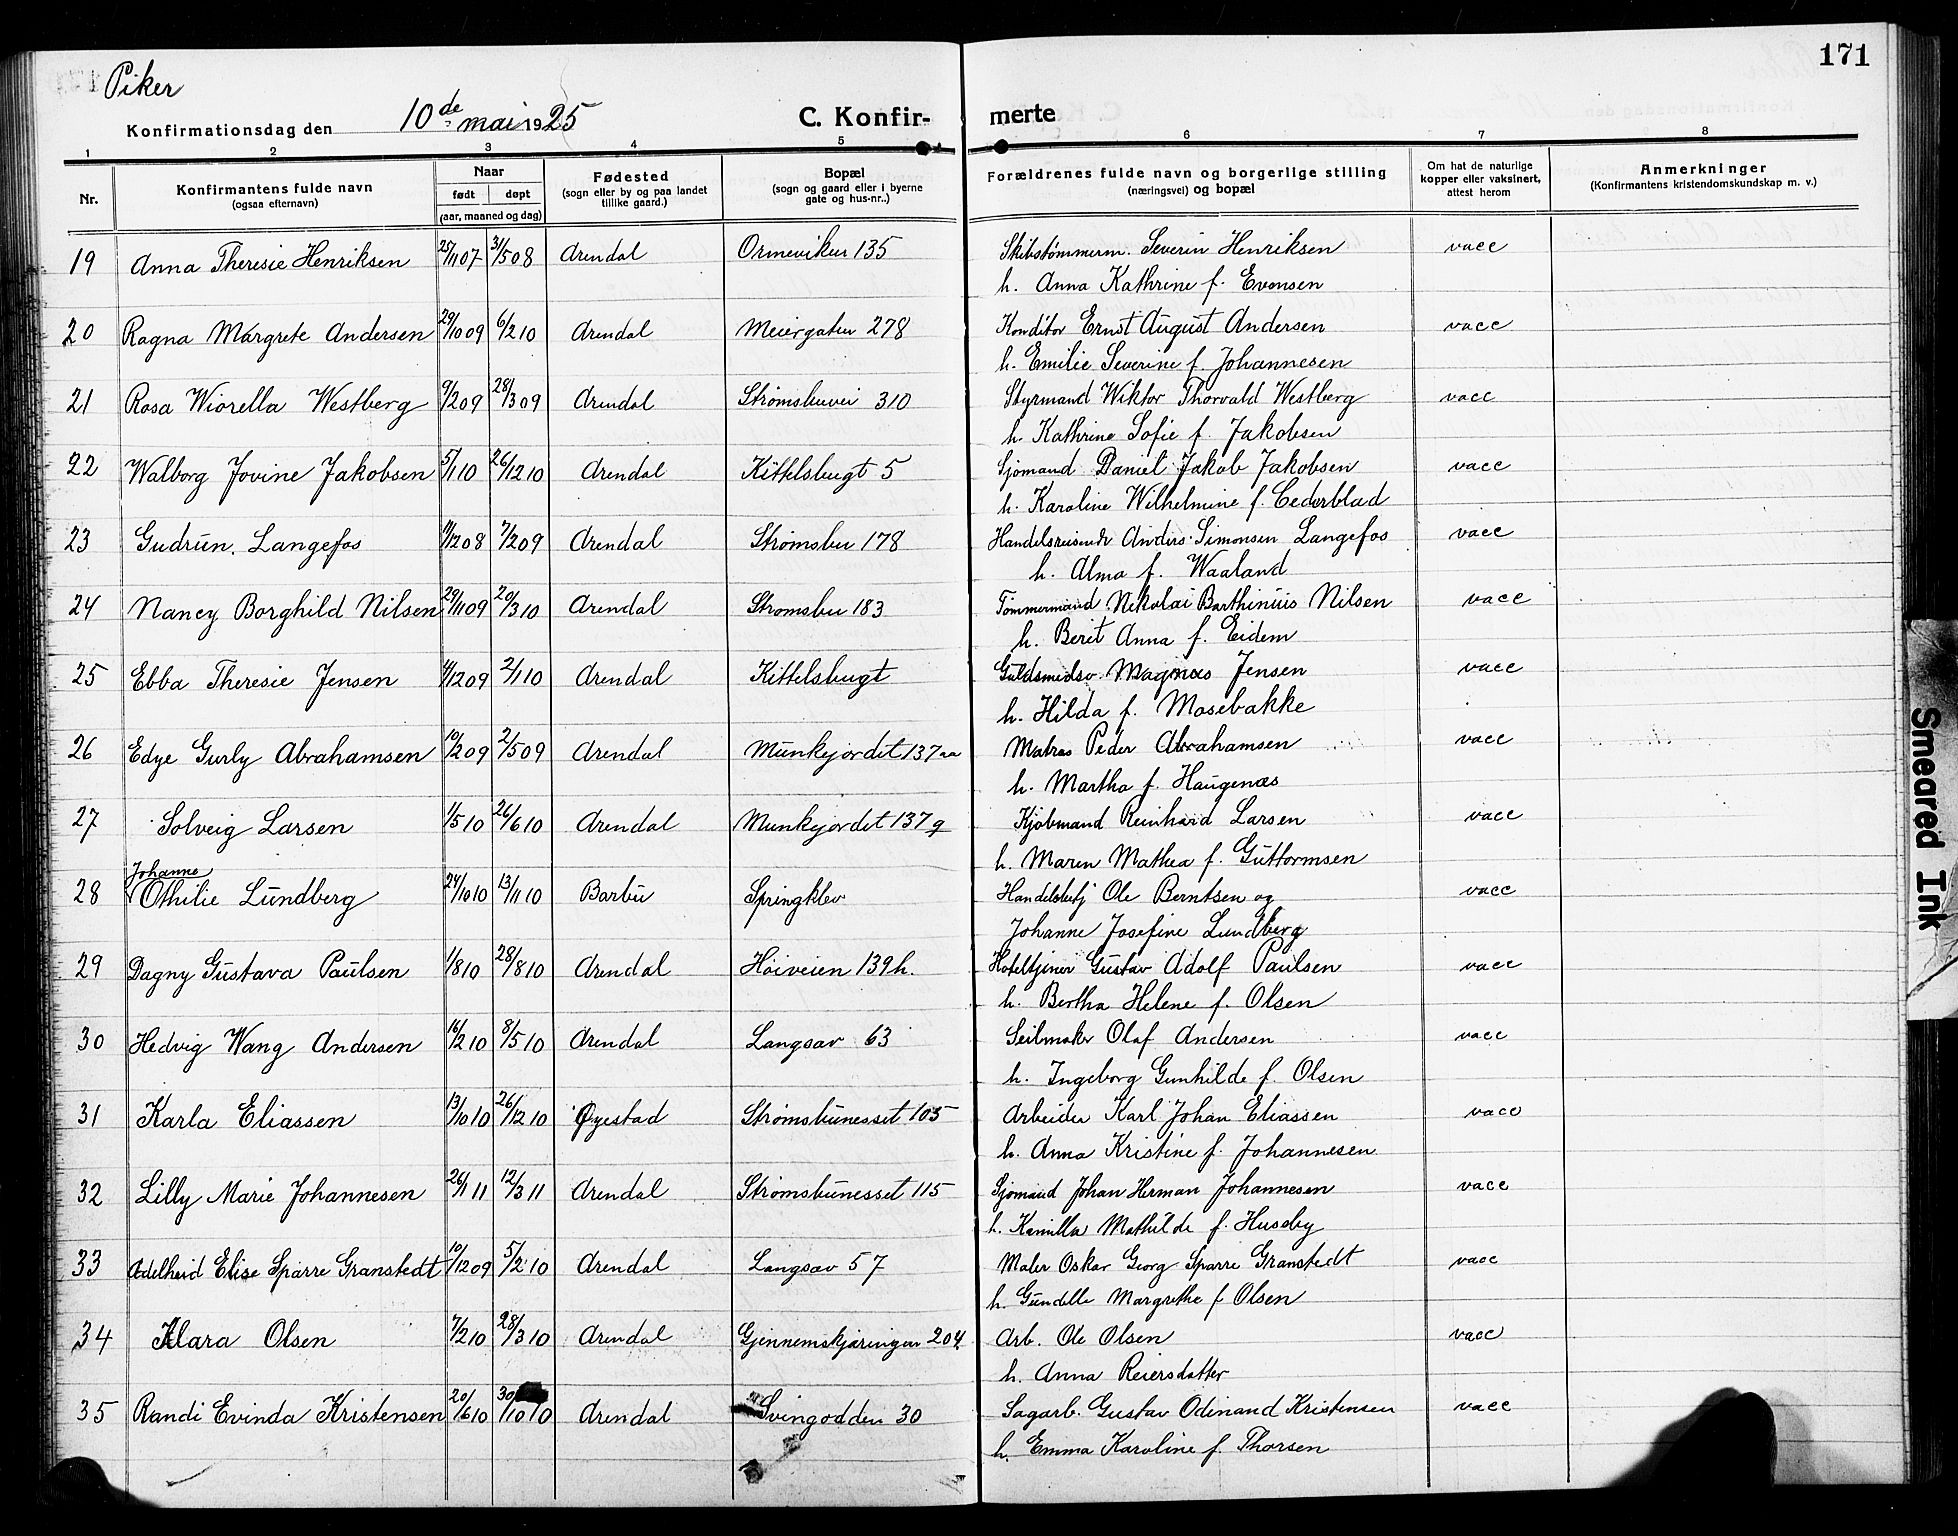 171
Piker
Konfirmationsdag den 10de mai 1925
C. Konfir- merte
1 2 3 4 5 6 7 8
Nr.
Konfirmantens fulde navn
(ogsaa efternavn)
Naar
født døpt
(aar, maaned og dag)
Fødested
(sogn eller by og paa landet
tillike gaard.)
Bopæl
(sogn og gaard eller i byerne
gate og hus-nr..)
Forældrenes fulde navn og borgerlige stilling
(næringsvei) og bopæl
Om hat de naturlige
kopper eller vaksinert,
attest herom
Anmerkninger
(Konfirmantens kristendomskundskap m. v.)
19 Anna Theresie Henriksen 25/11 07 31/5 08 Arendal Ormeviken 135 Skibstømmerm. Severin Henriksen vacc
h. Anna Kathrine f. Evensen
20 Ragna Margrete Andersen 29/10 09 6/2 10 Arendal Meiergaten 278 Konditor Ernst August Andersen vacc
h. Emilie Severine f. Johannesen
21 Rosa Wiorella Westberg 9/2 09 28/3 09 Arendal Strømsbuvei 310 Styrmand Wiktor Thorvald Westberg vacc
h. Kathrine Sofie f. Jakobsen
22 Walborg Jovine Jakobsen 5/1 10 26/12 10 Arendal Kittelsbugt 5 Sjømand Daniel Jakob Jakobsen vacc
h. Karoline Wilhelmine f. Cederblad
23 Gudrun Langefos /12 08 7/2 09 Arendal Strømsbu 178 Handelsreisende Anders Simonsen Langefos vacc
h. Alma f. Waaland
24 Nancy Borghild Nilsen 29/11 09 20/3 10 Arendal Strømsbu 183 Tømmermand Nikolai Barthinius Nilsen vacc
h. Berit Anna f. Eidem
25 Ebba Theresie Jensen 4/12 09 2/1 10 Arendal Kittelsbugt Guldsmedsv. Magnus Jensen vacc
h. Hilda f. Mosebakke
26 Edye Gurly Abrahamsen 10/2 09 2/5 09 Arendal Munkejordet 137 aa Matros Peder Abrahamsen vacc
h. Martha f. Haugenæs
27 Solveig Larsen 1/5 10 26/6 10 Arendal Munkejordet 137 g Kjøbmand Reinhard Larsen vacc
h. Maren Mathea f. Guttormsen
Johanne
28 Othilie Lundberg 24/10 10 13/11 10 Barbu Springklev Handelsbetj Ole Berntsen og vacc
Johanne Josefine Lundberg
29 Dagny Gustava Paulsen 1/8 10 28/8 10 Arendal Høiveien 139 h. Hoteltjener Gustav Adolf Paulsen vacc
h. Bertha Helene f. Olsen
30 Hedvig Wang Andersen 16/2 10 8/5 10 Arendal Langsæv 63 Seilmaker Olaf Andersen vacc
h. Ingeborg Gunhilde f. Olsen
31 Karla Eliassen 13/10 10 26/12 10 Øyestad Strømsbunesset 105 Arbeider Karl Johan Eliassen vacc
h. Anna Kristine f. Johannesen
32 Lilly Marie Johannesen 26/1 11 12/3 11 Arendal Strømsbunesset 115 Sjømand Johan Herman Johannesen vacc
h. Kamilla Mathilde f. Huseby
33 Adelheid Elise Sparre Granstedt 10/12 09 5/2 10 Arendal Langsæv 57 Maler Oskar Georg Sparre Granstedt vacc
h. Gundelle Margrethe f Olsen
34 Klara Olsen 7/2 10 28/3 10 Arendal Gjennemskjæringen 204 Arb. Ole Olsen vacc
h. Anna Reiersdatter
35 Randi Evinda Kristensen 20/6 10 30/10 10 Arendal Svingodden 30 Sagarb. Gustav Odinand Kristensen vacc
h. Emma Karoline f. Thorsen
Smeared Ink